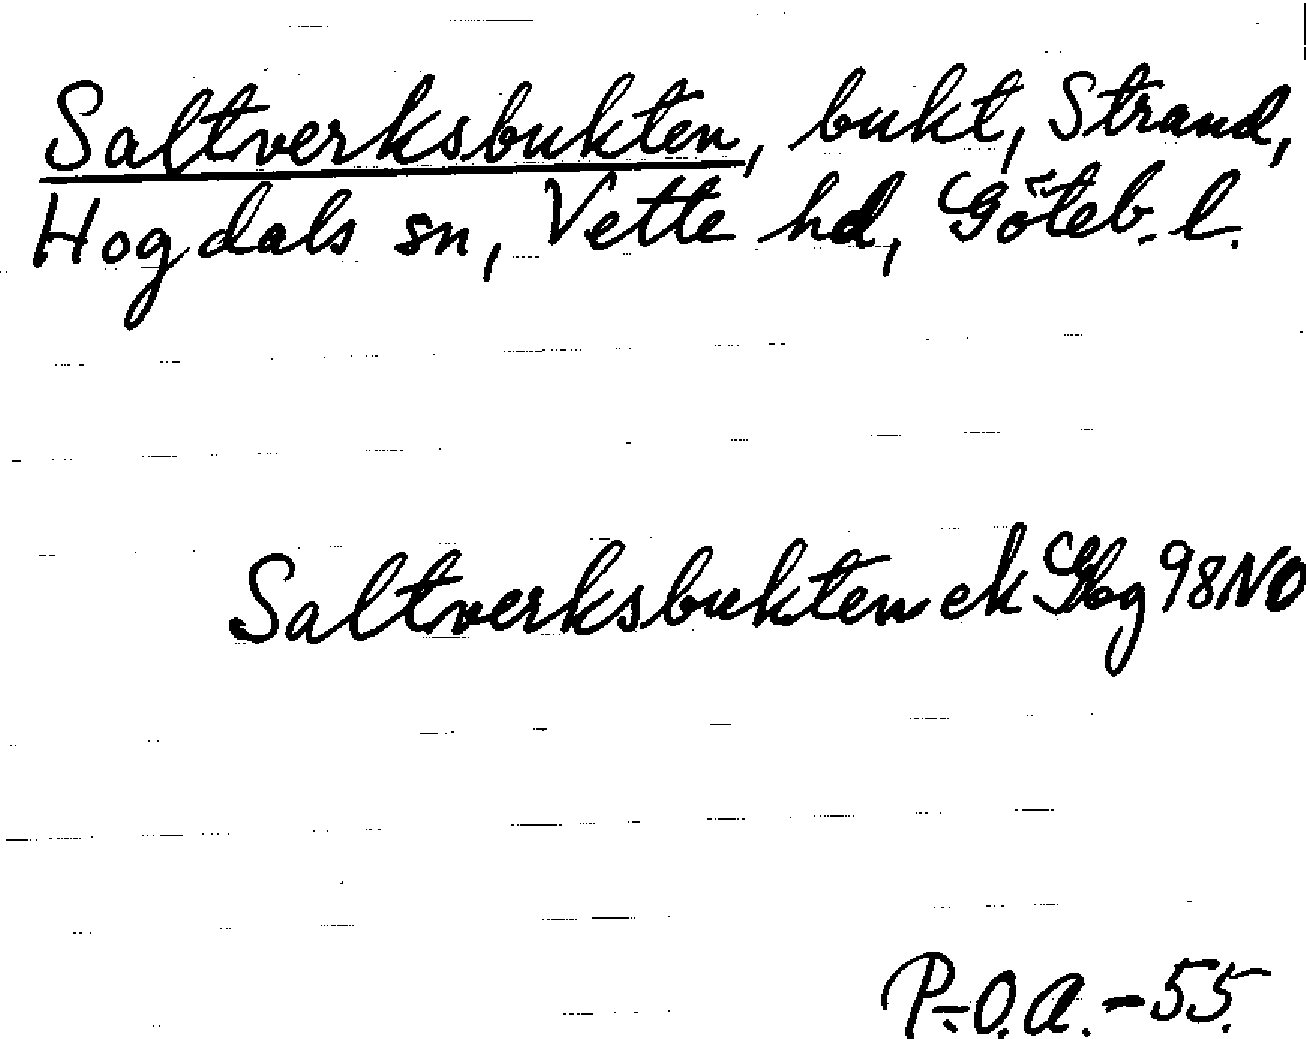 Saltverksbukten, bukt, Strand,
Hogdals sn, Vette hd, Göteb. l.
Saltverksbukten ek Gbg 98NO
P.-O.A. -55.